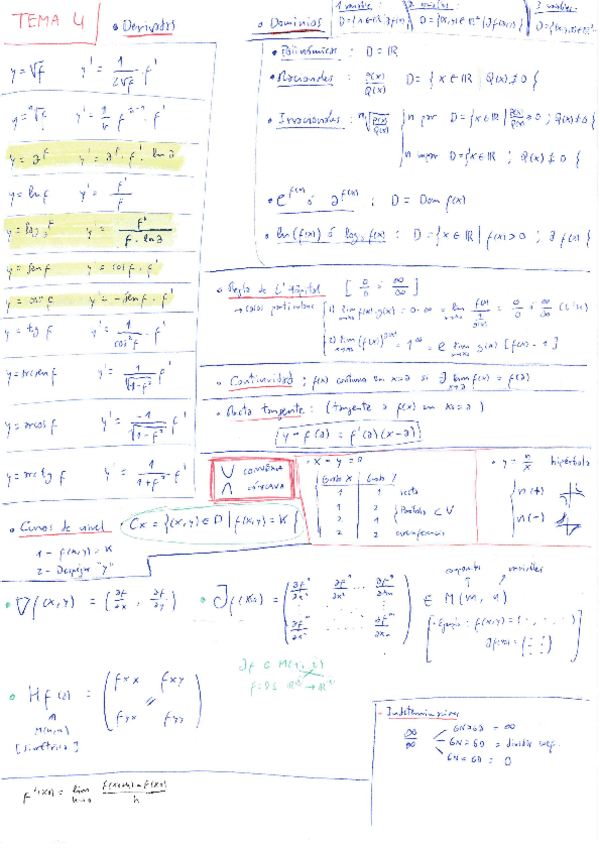 TEMA 4
• Derivadas
y = √f    y' = 1/(2√f) · f'
y = ⁿ√f    y' = 1/n f · f'
y = a^f    y' = a^f · f' · ln a
y = ln f    y' = f'/f
y = log_a f    y' = f'/(f · ln a)
y = sen f    y' = cos f · f'
y = cos f    y' = - sen f · f'
y = tg f    y' = 1/cos² f · f'
y = arcsen f    y' = 1/√(1-f²) · f'
y = arcos f    y' = -1/√(1-f²) · f'
y = arctg f    y' = 1/(1+f²) · f'
• Dominios
1 variable:
2 variables:
3 variables:
• Polinómicas : D = ℝ
• Racionales : P(x)/Q(x)    D = { x ∈ ℝ | Q(x) ≠ 0 }
• Irracionales : ⁿ√(P(x)/Q(x))
n par    D = { x ∈ ℝ | P(x)/Q(x) ≥ 0 ; Q(x) ≠ 0 }
n impar    D = { x ∈ ℝ ; Q(x) ≠ 0 }
• e^f(x) ó a^f(x) : D = Dom f(x)
• ln(f(x)) ó log_a f(x) : D = { x ∈ ℝ | f(x) > 0 ; ∃ f(x) }
• Regla de L'Hôpital    [ 0/0 ó ∞/∞ ]
→ casos particulares
1) lim f(x) · g(x) = 0 · ∞ = lim f(x)/(1/g(x)) = 0/0 ó ∞/∞ (L'H)
2) lim (f(x))^g(x) = 1^∞ = e lim g(x) [f(x) - 1]
• Continuidad : f(x) continua en x=a si ∃ lim f(x) = f(a)
• Recta tangente : (tangente a f(x) en x=a)
y - f(a) = f'(a)(x-a)
∪ convexa
∩ cóncava
Grado X    Grado Y
1    1    recta
1    2
2    1    Parábola ⊂ ∪
2    2    circunferencia
• y = n/x    hipérbola
n(+)
n(-)
• Curvas de nivel    • Cκ = {(x,y) ∈ D | f(x,y) = K}
1 - f(x,y) = K
2 - Despejar "y"
• ∇f(x,y) = (∂f/∂x , ∂f/∂y)
∈ M(m, n)
variables
• Hf(a) = ( fxx  fxy
fyx  fyy )
[simétrica]
- Indeterminaciones
∞/∞
GN>GD = ∞
GN=GD = dividir
f'(x0) = lim (f(x0+h) - f(x0))/h